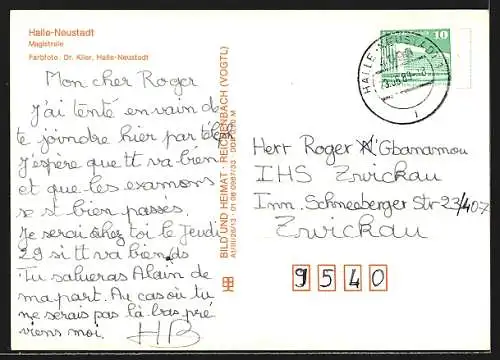 Halle-Neustadt
Magistrale
Farbfoto: Dr. Klier, Halle-Neustadt
Mon cher Roger
J'ai tenté en vain de
te joindre hier par télépho
J'espère que tt va bien
et que les examens
se st bien passés.
Je serai chez toi le Jeudi
29 si tt va bien ds
Tu salueras Alain de
ma part. Au cas où tu
ne serais pas là-bas pré
viens moi.
HB
BILD UND HEIMAT · REICHENBACH (VOGTL)
HALLE-NEUSTADT 1
10
Herr Roger Gbanamou
IHS Zwickau
Inn. Schneeberger Str 23/407
Zwickau
9540